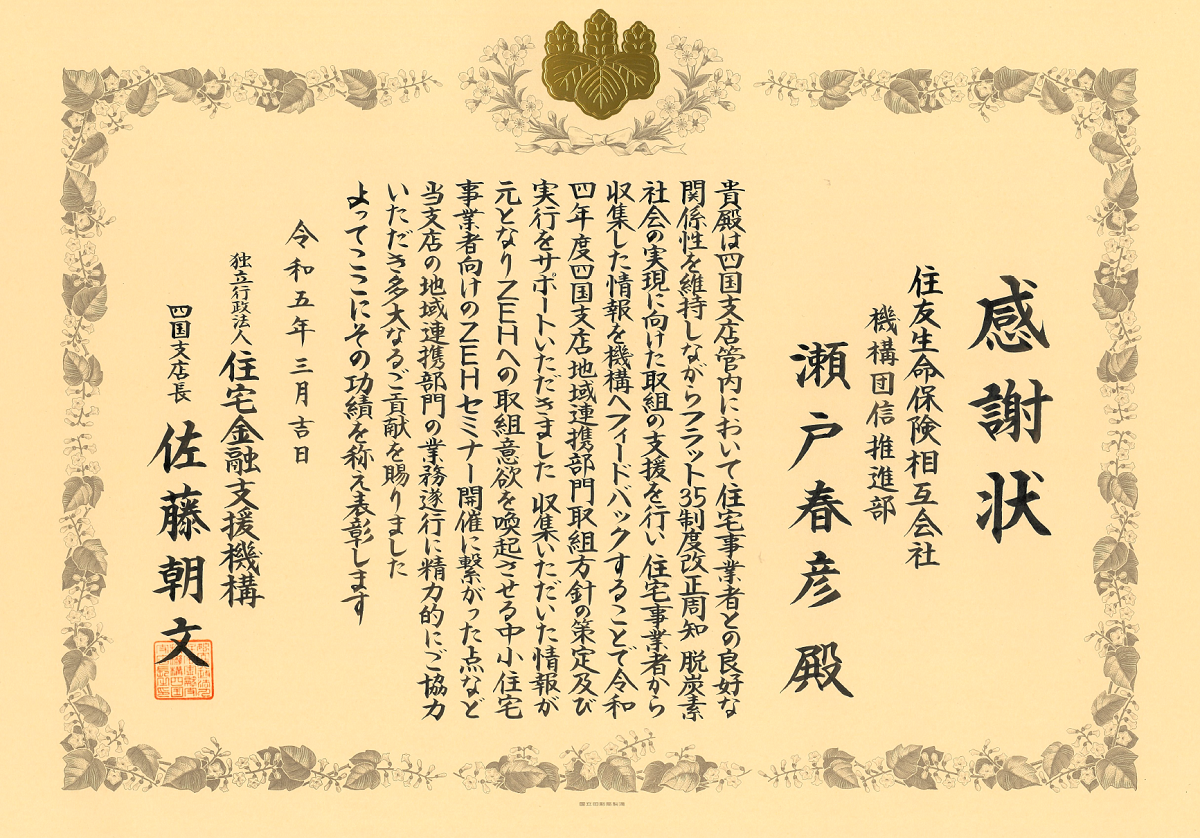 感謝状
住友生命保険相互会社
機構団信推進部
瀬戸春彦 殿
貴殿は四国支店管内において住宅事業者との良好な
関係性を維持しながらフラット35制度改正周知 脱炭素
社会の実現に向けた取組の支援を行い 住宅事業者から
収集した情報を機構へフィードバックすることで令和
四年度四国支店地域連携部門取組方針の策定及び
実行をサポートいただきました 収集いただいた情報が
元となりZEHへの取組意欲を喚起させる中小住宅
事業者向けのZEHセミナー開催に繋がった点など
当支店の地域連携部門の業務遂行に精力的にご協力
いただき多大なるご貢献を賜りました
よってここにその功績を称え表彰します
令和五年三月吉日
独立行政法人 住宅金融支援機構
四国支店長 佐藤朝文